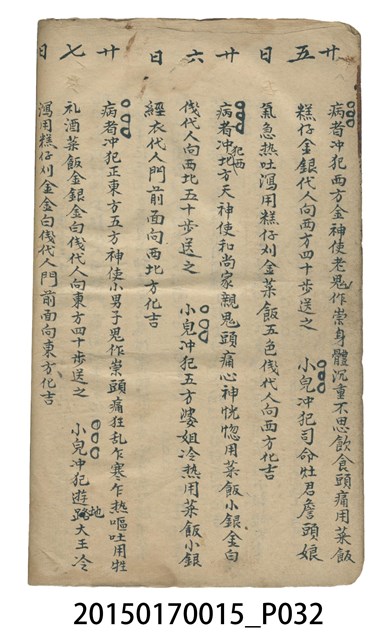 廿五日
病者冲犯西方金神使老鬼作祟身體沉重不思飲食頭痛用菜飯
糕仔金銀代人向西方四十步送之 小兒冲犯司命灶君簷頭娘
氣急熱吐瀉用糕仔刈金菜飯五色伐代人向西方化吉
廿六日
病者冲犯西北方天神使和尚家親鬼頭痛心神恍惚用菜飯小銀金白
伐代人向西北五十步送之 小兒冲犯五方婆姐冷熱用菜飯小銀
經衣代人門前面向西北方化吉
廿七日
病者冲犯正東方五方神使小男子鬼作祟頭痛狂乱乍寒乍熱嘔吐用牲
礼酒菜飯金銀金白伐代人向東方四十步送之 小兒冲犯遊路地大王冷
瀉用糕仔刈金金白伐代人門前面向東方化吉
20150170015_P032